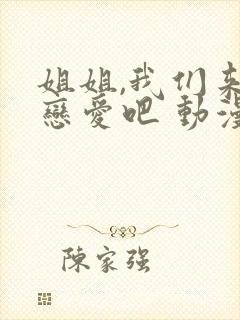 姐姐,我们来
戀爱吧 動漫
陳家强